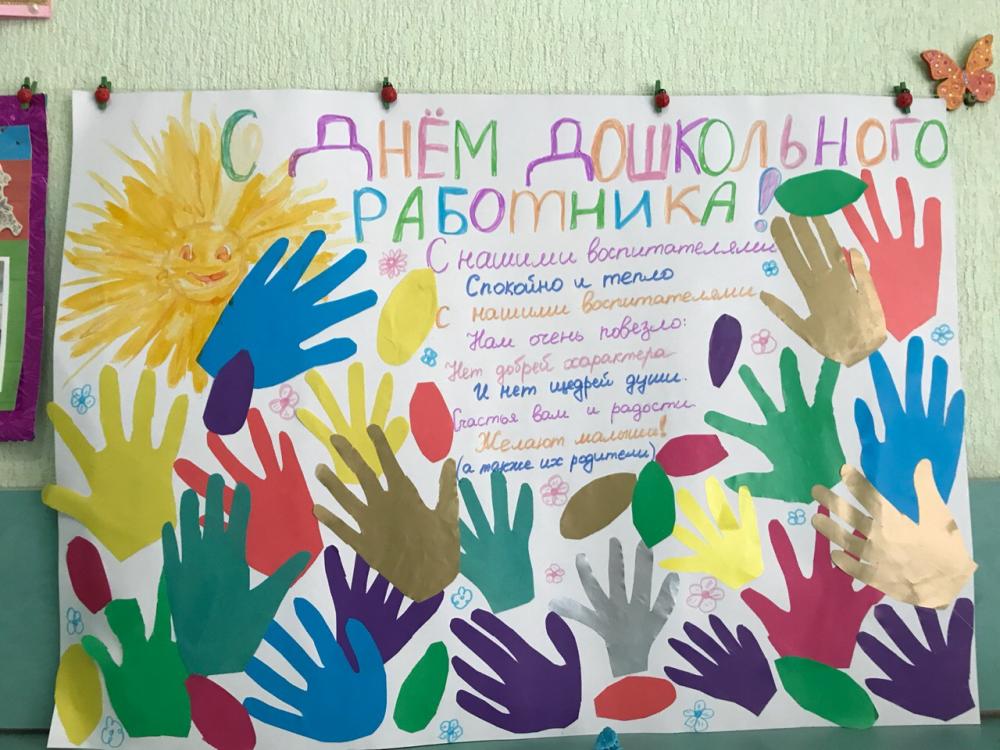 С ДНЁМ ДОШКОЛЬНОГО
РАБОТНИКА!
С нашими воспитателями
Спокойно и тепло
С нашими воспитателями
Нам очень повезло:
Нет добрей характера
И нет щедрей души.
Счастья вам и радости
Желают малыши!
(а также их родители)